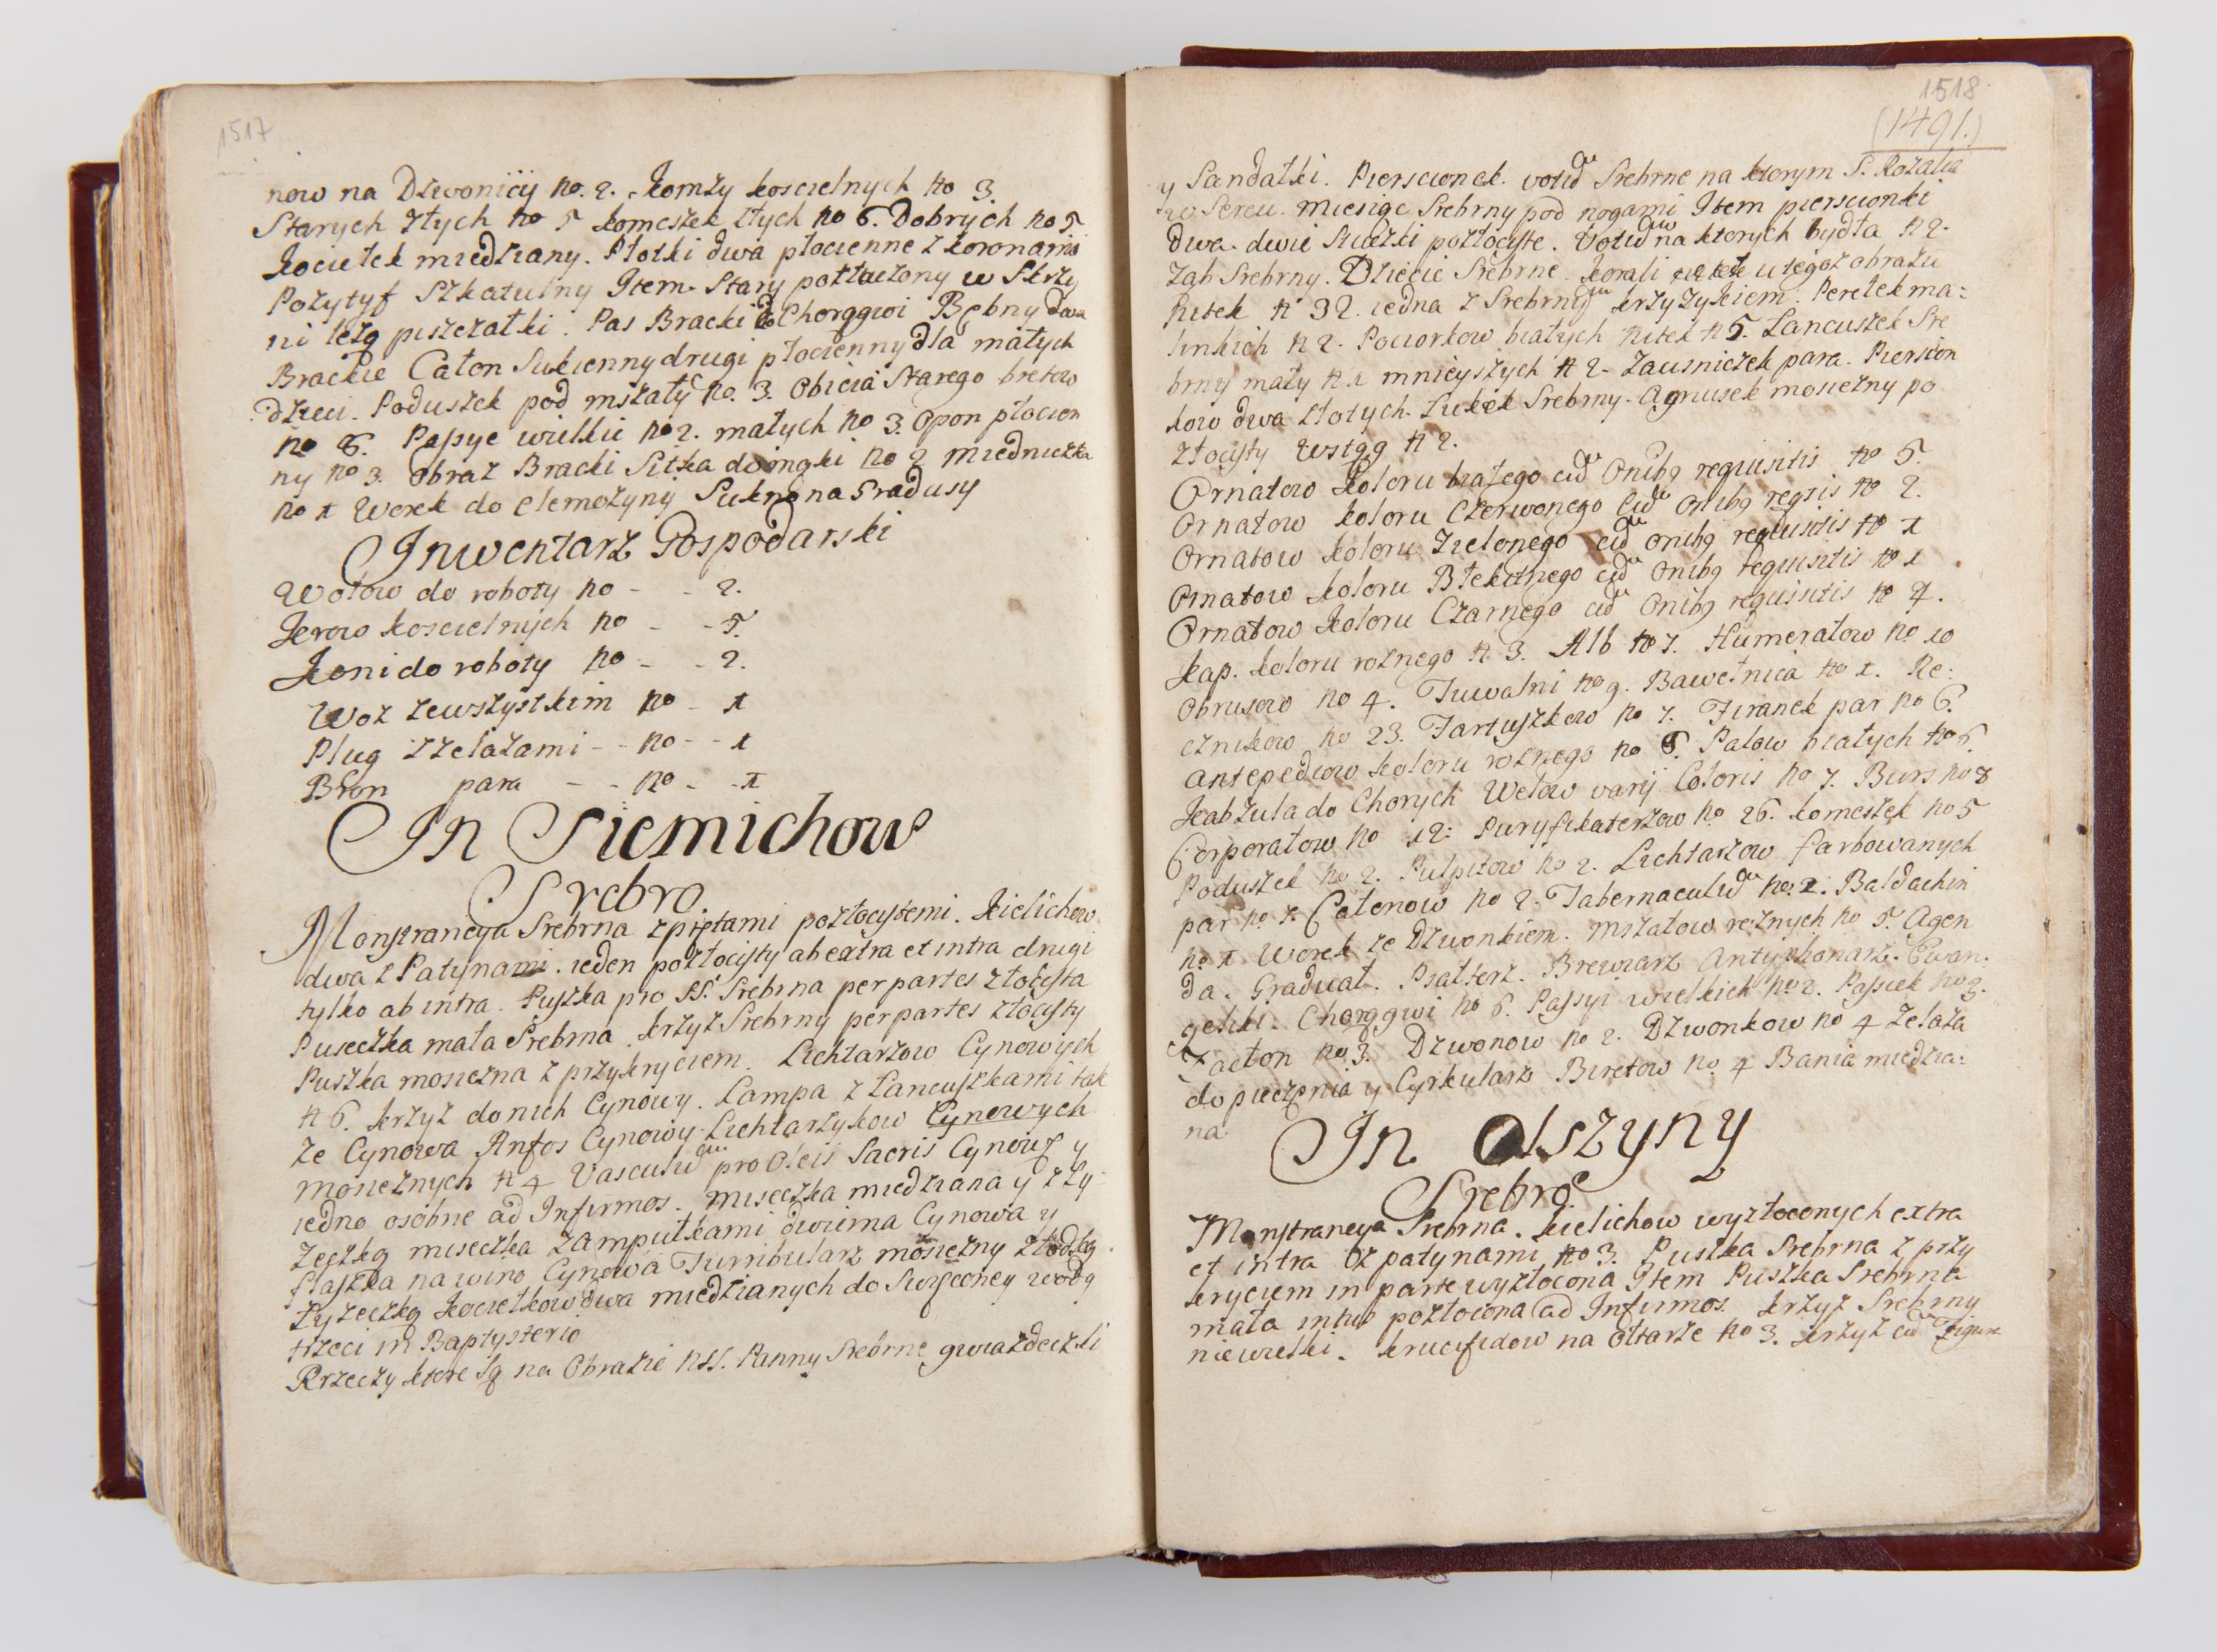 1517
now na Dzwonicy no. 2. Komży koscielnych no 3.
Starych złych no 5 komeszek złych no 6. Dobrych no 5.
Kociełek miedziany. Płotki dwa płocienne z koronami
Pozytyf Szkatulny Item Stary połtaczony w Skrzy
ni leżą piszczałki. Pas Bracki do Chorągwi Bębny dwa
Brackie Całon Sukienny drugi płocienny dla małych
dzieci. Poduszek pod mszały no. 3. Obicia Starego bretow
no 6. Passye wielkie no 2. małych no 3. Opon płocien
ny no 3. Obraz Bracki Sitka do mąki no 2 miedniczka
no 1 Worek do elemozyny Sukno na Gradusy
Inwentarz Gospodarski
Wołow do roboty no - - 2.
Krow koscielnych no - - 5.
Koni do roboty no - - 2.
Woz zewszystkim no - 1
Plug z zelazami - - no - - 1
Bron para - - no - - 1
In Siemichow
Srebro.
Monstrancya Srebrna zpiętami pozłocystemi. Kielichow
dwa z Patynami. ieden pozłocisty ab extra et intra drugi
tylko ab intra. Puszka pro SS. Srebrna per partes złocista
Puseczka mała Srebrna. krzyż Srebrny per partes złocisty
Puszka mosiezna z przykryciem. Lichtarzow Cynowych
n 6. krzyż do nich Cynowy. Lampa z Lancuszkami tak
ze Cynowa Anfos Cynowy. Lichtarzykow Cynowych
mosieznych n 4 Vasculu pro Oleis Sacris Cynowe y
iedno osobne ad Infirmos. miseczka miedziana y z Ły
zeczką miseczka zampułkami dwiema Cynowa y
flaszka na wino Cynowa Turribularz mosiezny złodką
Łyzeczką Kociełkow dwa miedzianych do Swięconey wody
trzeci in Baptysterio
Rzeczy ktore Są na Obrazie NSS. Panny Srebrne gwiazdeczki
1518
(1491.)
y Sandałki. Pierscionek. votu Srebrne na ktorym S. Rozalia
two Sercu. miesiąc Srebrny pod nogami Item pierscionki
dwa. dwie Sluzki pozłociste. Votu na ktorych bydła n 2.
Ząb Srebrny. Dziecię Srebrne. korali u tegoz obrazu
Nitek n 32. iedna z Srebrnym krzyzykiem. Perełek ma:
linkich n 2. Paciorkow białych Nitek n 5. Lancuszek Sre
brny mały n 1 mnieyszych n 2. Zauszniczek para. Pierscion
kow dwa złotych. Sukek Srebrny. Agnusek mosiezny po
złocisty Wstąg n 2.
Ornatow Koloru białego cu Onibg requisitis no 5.
Ornatow koloru Czerwonego cu Onibg reqsis no 2.
Ornatow koloru Zielonego cu Onibg requisitis no 1
Ornatow koloru Błekitnego cu Onibg requisitis no 1
Ornatow Koloru Czarnego cu Onibg requisitis no 4.
Kap. koloru roznego n. 3. Alb no 7. Humerałow no 10
Obrusow no 4. Tuwalni no 9. Bawełnica no 1. Re:
cznikow no 23. Fartuszkow no 7. Firanek par no 6.
Antepediow koloru roznego no 8. Palow białych no 6.
Kabzula do Chorych Welow varij Coloris no 7. Burs no 8
Corporałow no 12: Puryfikaterzow no 26. komeszek no 5
Poduszek no 2. Pulpitow no 2. Lichtarzow farbowanych
par no 1. Całonow no 2. Tabernaculu no. 2. Baldachin
no 1 Worek ze Dzwonkiem. mszałow roznych no 5. Agen
da. Graduał. Psałterz. Brewiarz Antyphonarz. Ewan.
geliki. Chorągwi no 6. Passyi wielkich no 2. Passiek no 3.
Facton no 3. Dzwonow no 2. Dzwonkow no 4 Zelaza
do pieczenia y Cyrkularz Biretow no. 4 Bania miedzia:
na
In Olszyny
Srebro
Monstrancya Srebrna. kielichow wyzłoconych extra
et intra z patynami no 3. Puszka Srebrna z przy
kryciem in parte wyzłocona Item Puszka Srebrna
mała intus pozłocona ad Infirmos. krzyż Srebrny
niewielki. krucyfixow na Ołtarze no 3. krzyż cu Figura